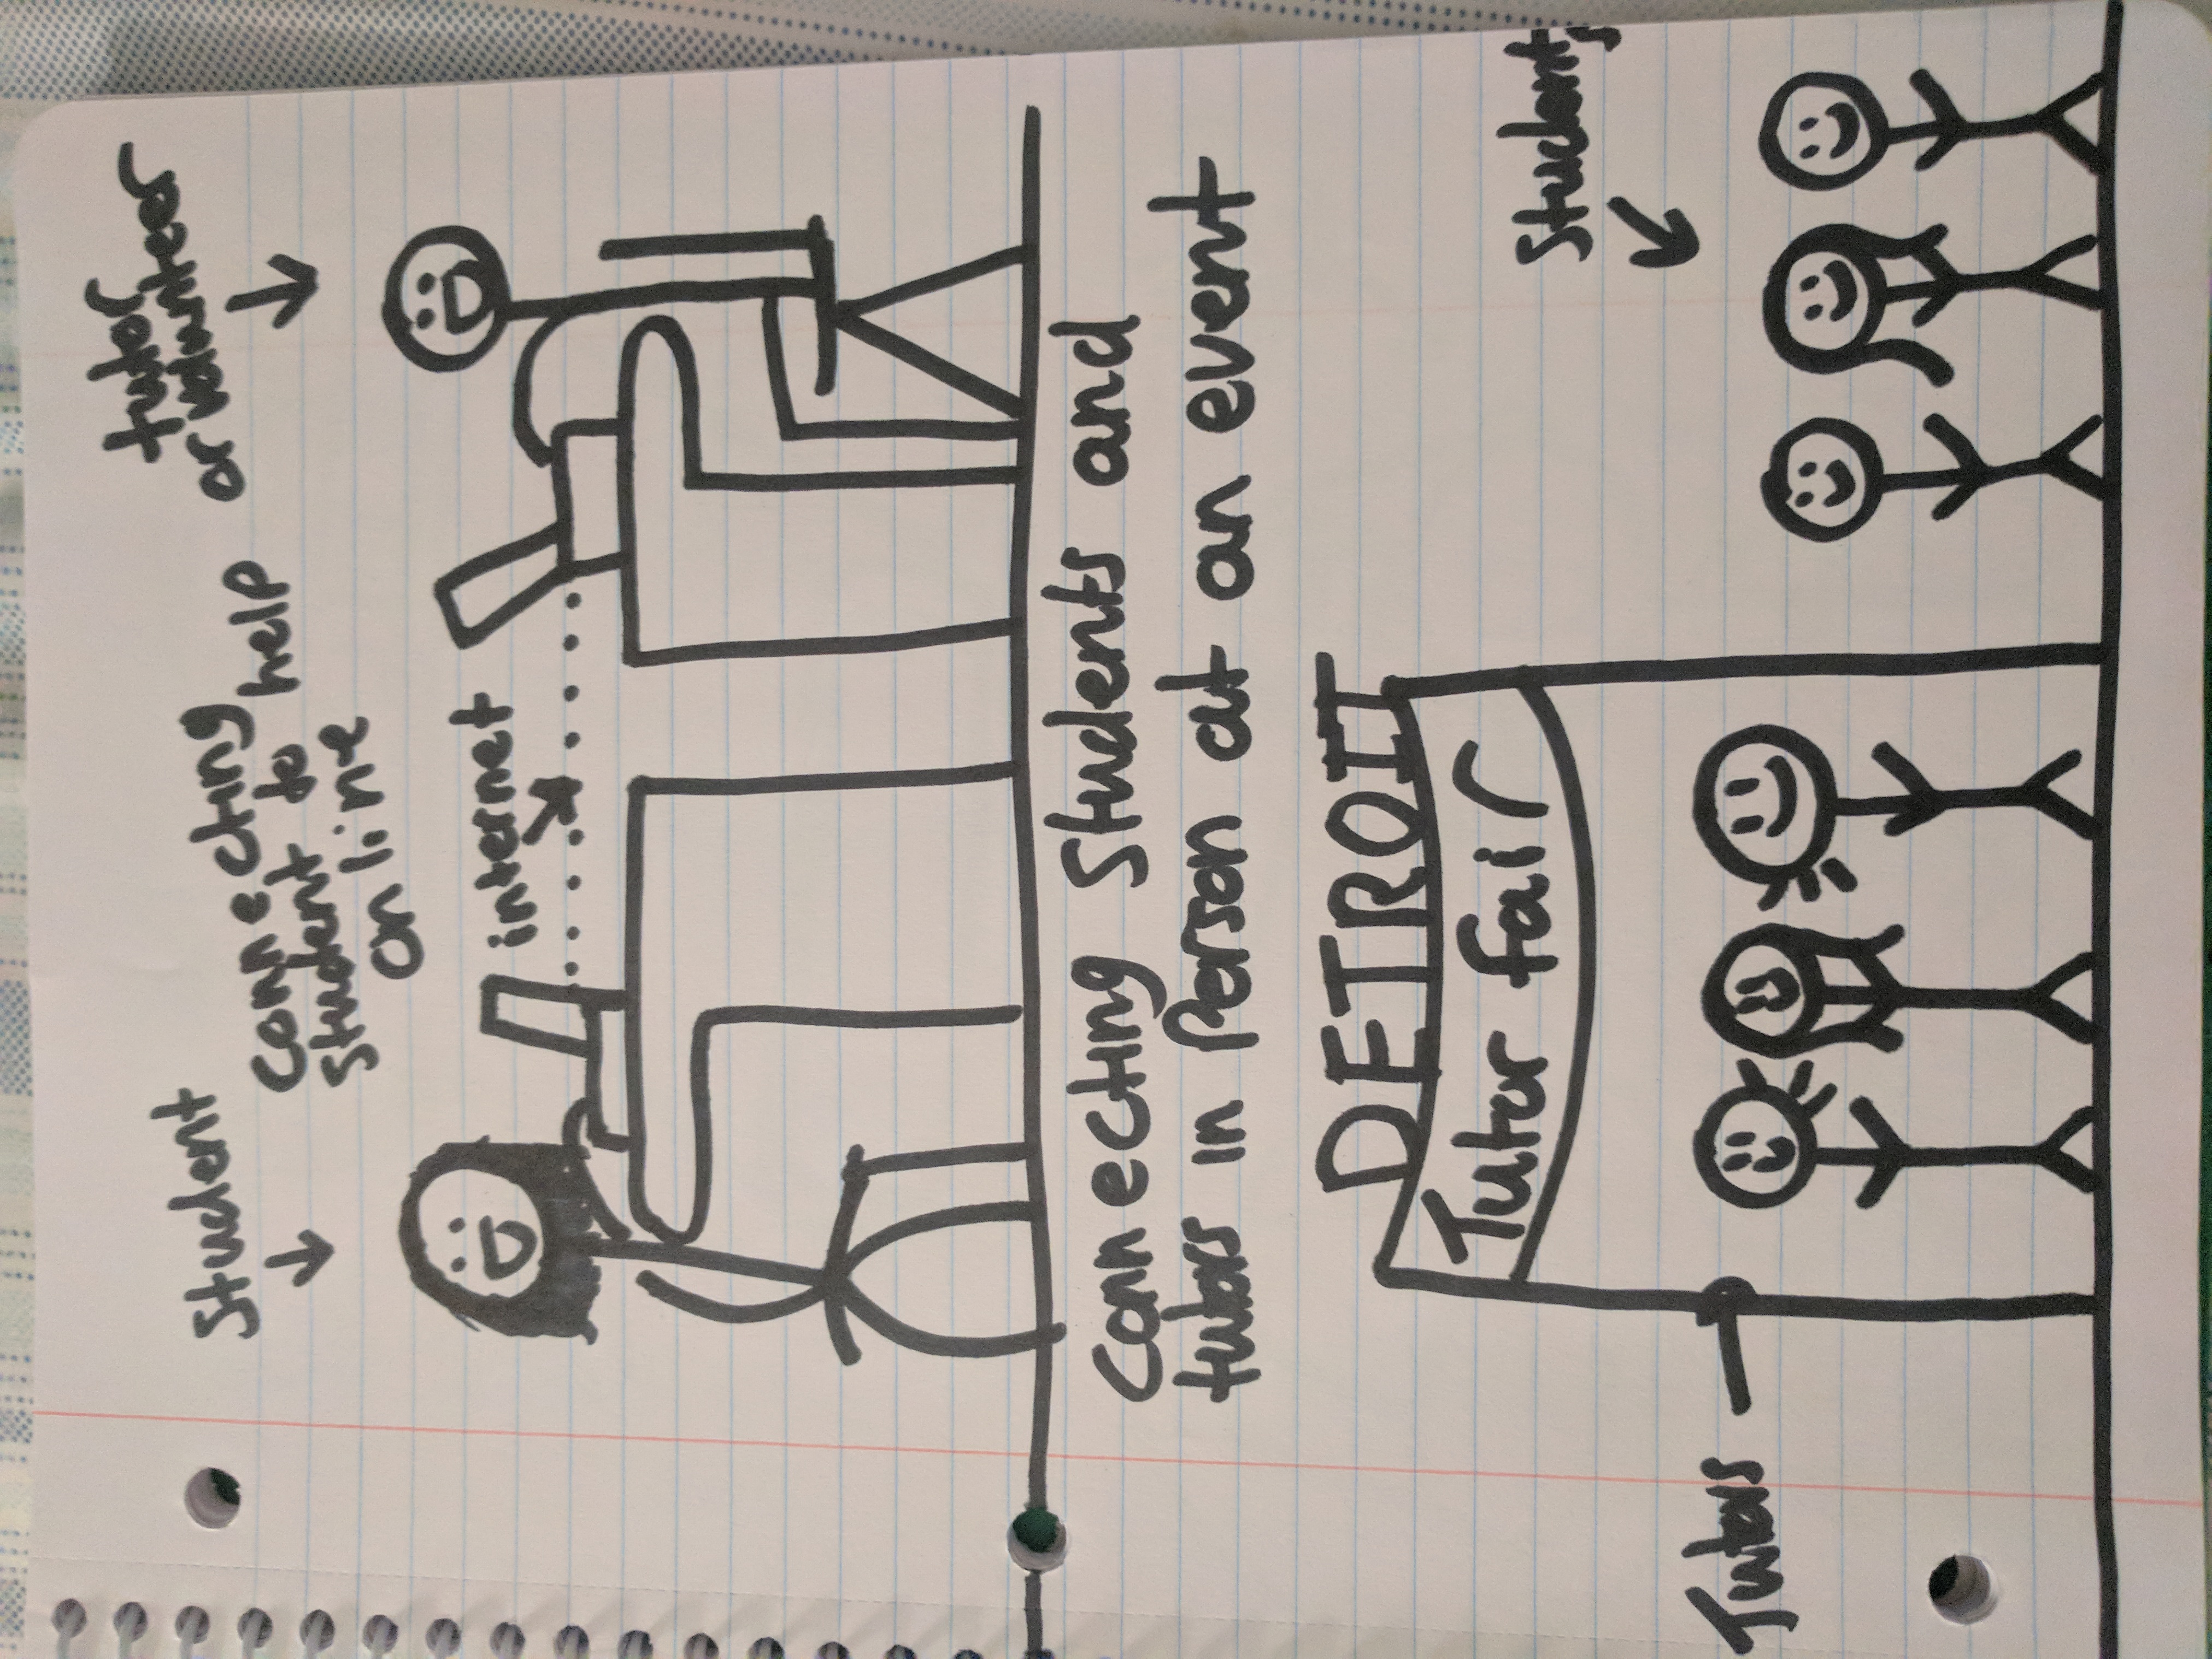 Student
connecting
student to help
online
tutor
or volunteer
internet
Connecting Students and
tutors in Person at an event
DETROIT
Tutor fair
Students
Tutors